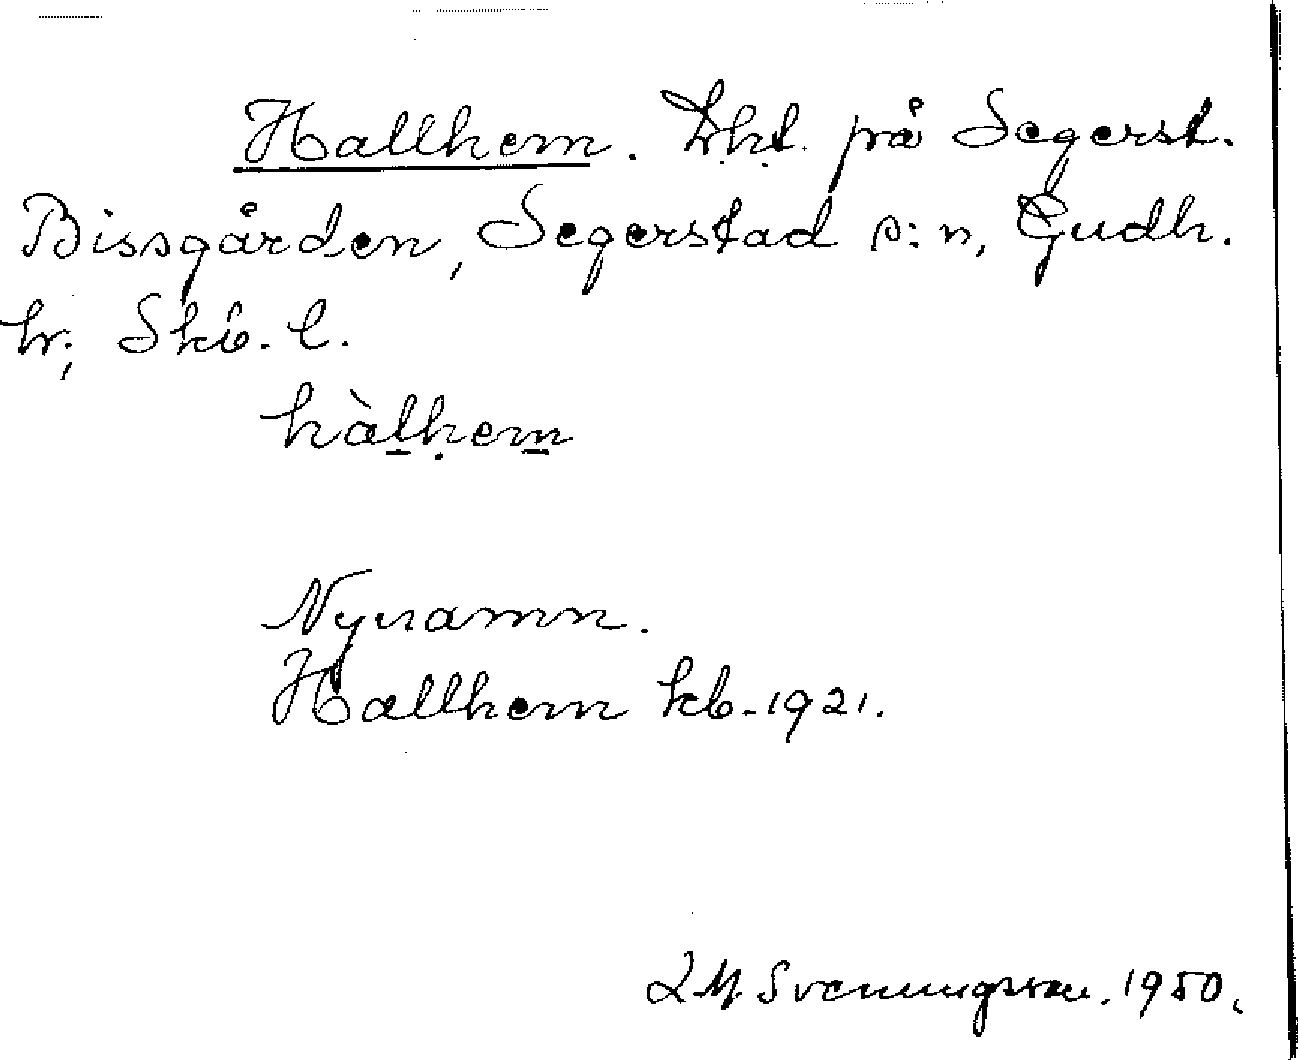 Hallhem. Lht. på Segerst.
Bissgården, Segerstad s:n, Gudh.
hr, Skb. l.
hàlhem
Nynamn.
Hallhem kb. 1921.
L M. Svenningsson. 1950.